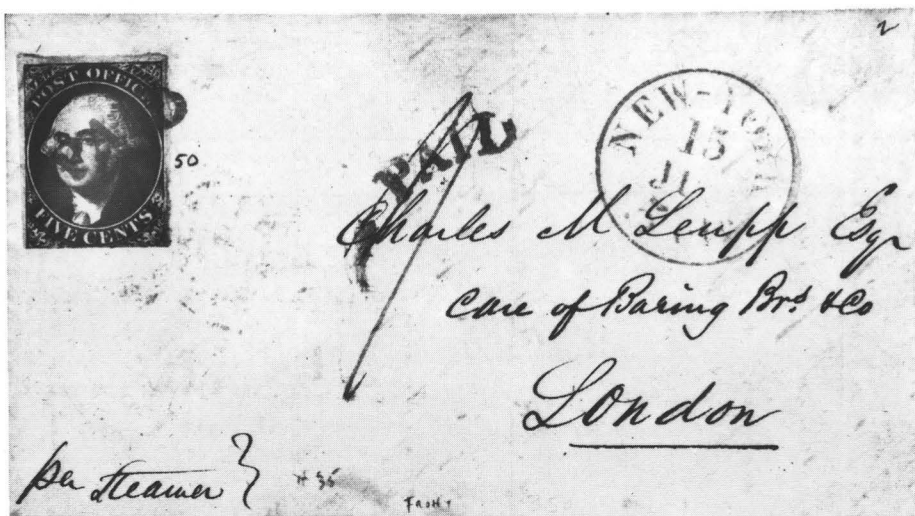 2
POST OFFICE
FIVE CENTS
50
PAID
NEW-YORK
15
Charles M Leupp Esqr
care of Baring Brs & Co
London
per Steamer
FRONT